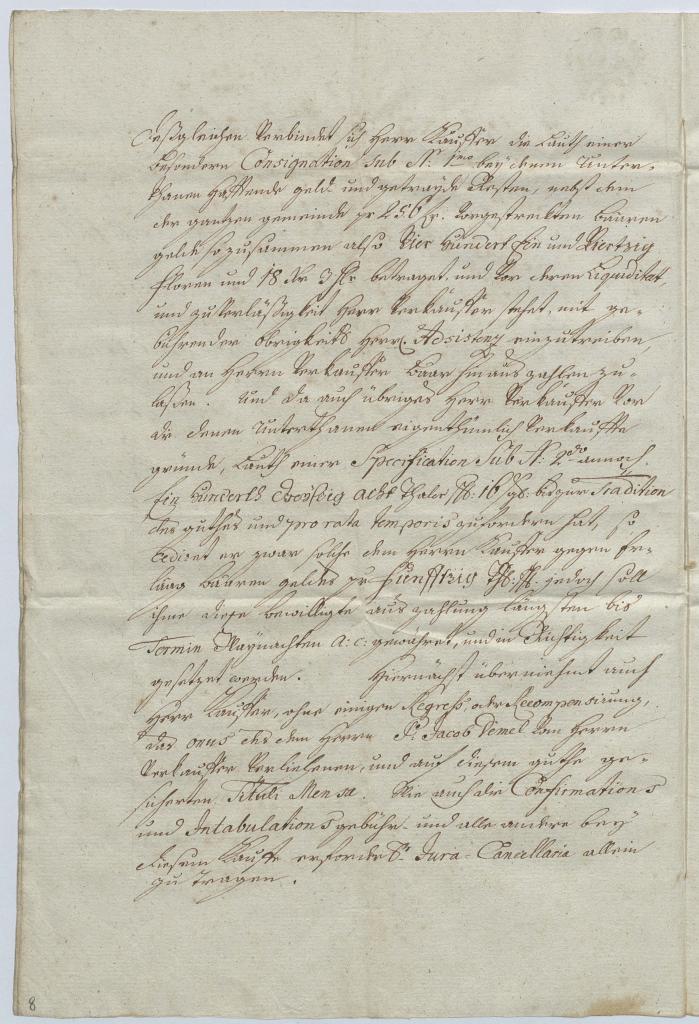 Deßgleichen Verbindet sich Herr Kauffer die Lauth einer
besondern Consignation sub N: 1mo bey denen Unter-
thanen hafftende geld und getrayde Resten, nebst dem
der gantzen gemeinde pr 256 fr. Vorgestreckten baaren
gelde so zusammen also Vier hundert Ein und Viertzig
floren und 18 Kr 3 hlr betraget, und Vor deren Liquiditæt,
und zuVerläßigkeit Herr Verkauffer stehet, mit ge-
bührender Obrigkeitl. Herr. Adsistenz einzutreiben,
und an Herrn Verkauffer baar hinaus zahlen zu-
laßen. Und da auch übrigens Herr Verkauffer Vor
die denen Unterthanen eigenthümlich Verkauffte
gründe, Lauth einer Specification Sub N: 2do annoch
Ein hunderth acht Thaler, 16 gl: bis zur Tradition
des guthes und pro rata temporis zufordern hat, so
cediret er zwar solche dem Herrn Kauffer gegen Er-
laag baaren geldes pr funfftzig jedoch soll
ihme diese bewilligte auszahlung längstens bis
Termin Waynachten a: c: gewähret, und in Richtigkeit
gesetzet werden. Hiernächst übernihmt auch
Herr Kauffer, ohne einigen Regress, oder Recompensirung,
das onus des dem Herrn P: Jacob Demel Von Herrn
Verkauffer Verliehenen, und auf diesem guthe ge-
sicherten Tituli Mensæ. Wie auch die Confirmations
und Intabulations gebühr und alle andere bey
diesem Kauffe erforderl. Jura Cancellaria allein
zu tragen.
8